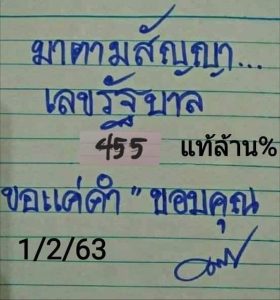 มาตามสัญญา...
เลขรัฐบาล
455 แท้ล้าน%
ขอแค่คำ "ขอบคุณ
1/2/63